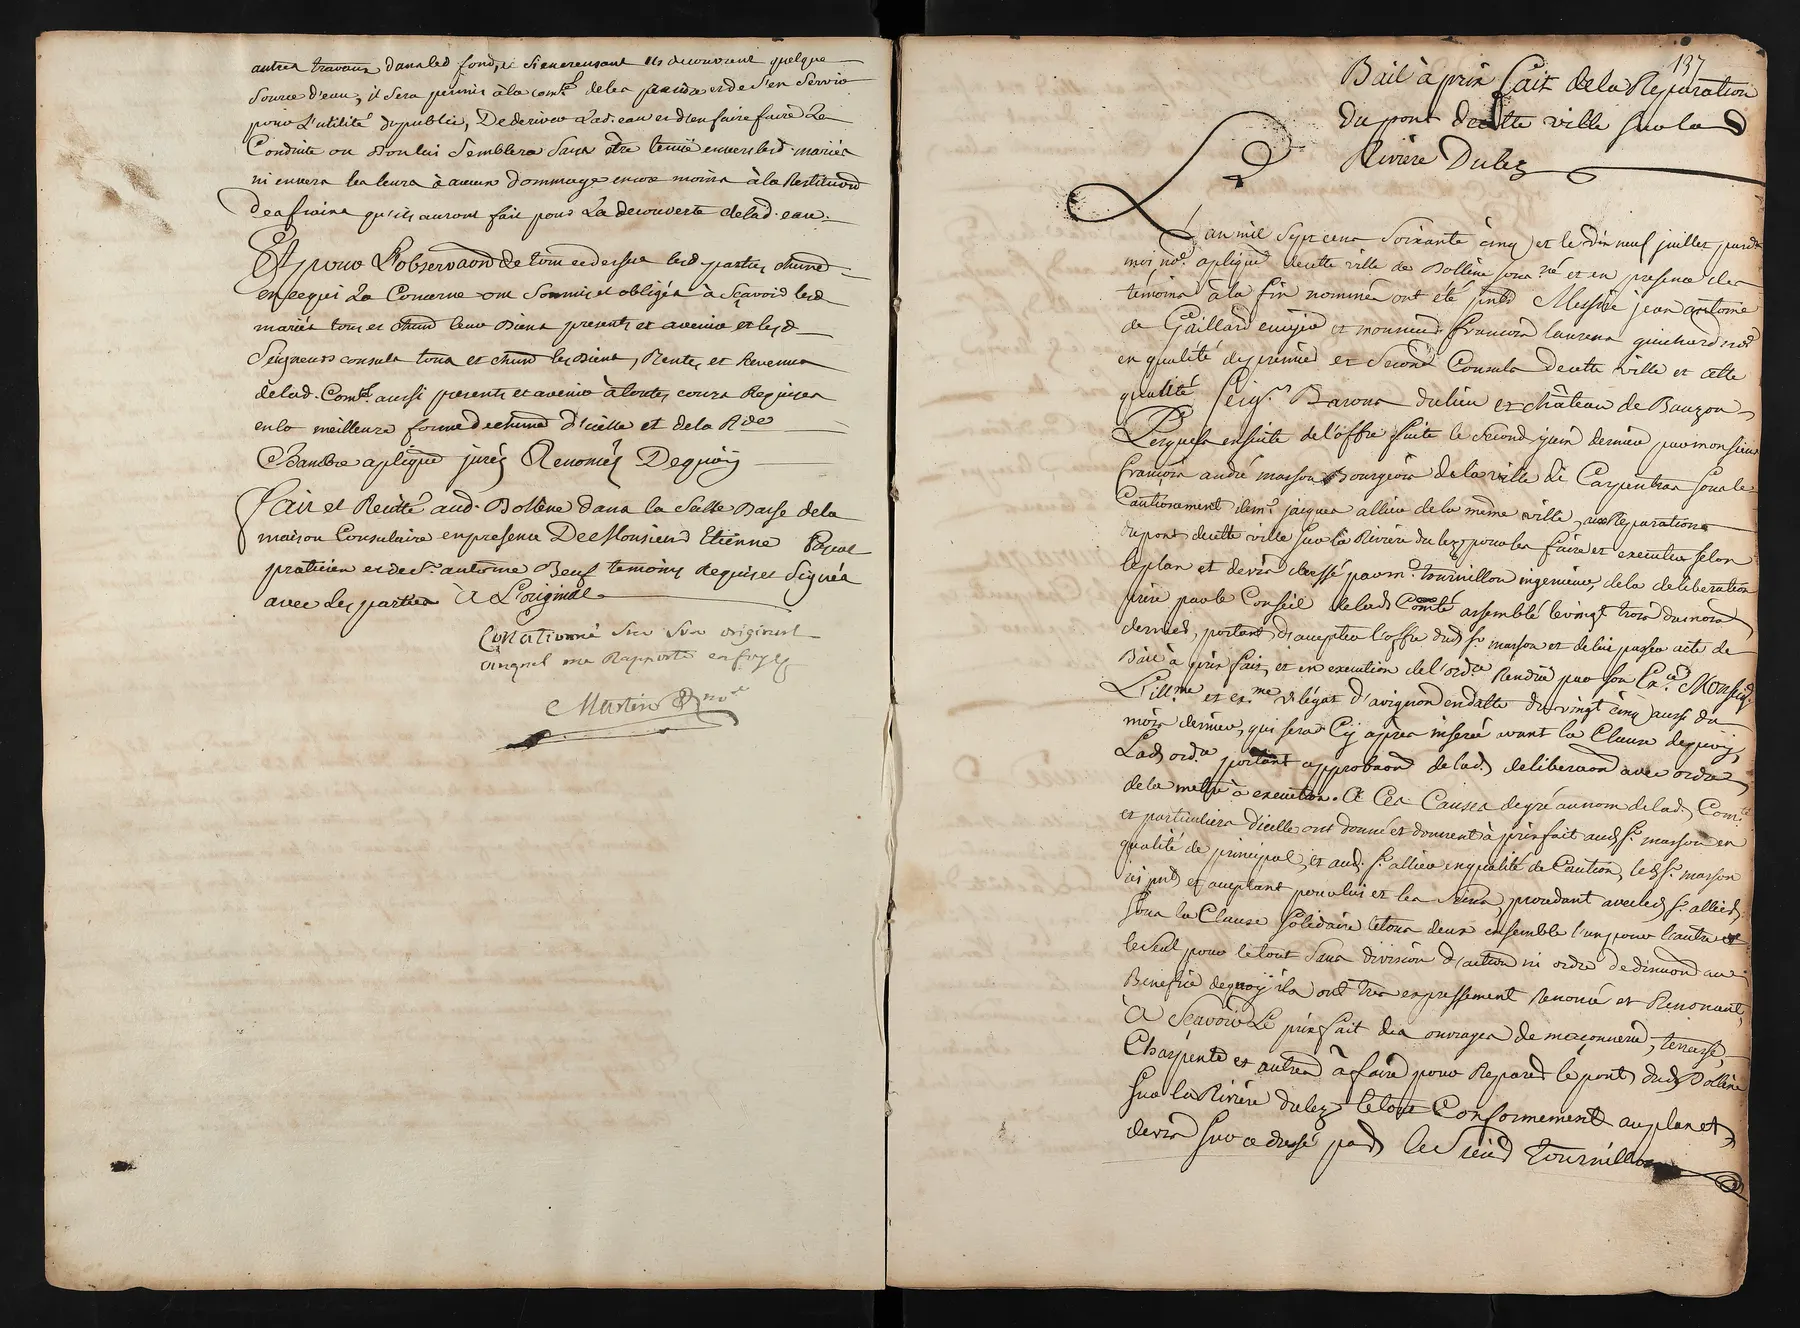 autres travaux dans led. fond, et si en creusant ils decouvrent quelque
source d'eau, il sera permis à la com.té de les prendre et de s'en servir
pour l'utilité du public, De deriver lad. eau et d'en faire faire La
Conduite ou bon lui Semblera Sans etre tenüe envers lesd. mariés
ni envers les leurs à aucun dommage encore moins à la Restitu̅o̅n
des fraix qu'ils auront fait pour La decouverte de lad. eau.
Et pour L'observa̅o̅n de tout ce dessus lesd. parties chune
en ce qui La Concerne ont Soumis et obligés à Sçavoir lesd
mariés tous et chuns leurs Biens presents et avenir et lesd
Seigneurs consuls tous et chuns les Biens, Rentes et Revenus
de lad. Com.té aussi presents et avenir à toutes cours Requises
en la meilleure forme de chune d'icelle et de la R.de
Chambre aplique jurés Renoncés De quoy
Fait et Recitté aud. Bollène dans la Salle Basse de la
maison Consulaire en presence De Monsieur Etienne Pascal
praticien et de S.r antoine Beuf temoins Requis et Signés
avec les parties à L'original
Collationné sur son original
auquel me Rapporte en foy
Martin No.re
137
Bail à prix fait de la Reparation
du pont de cette ville sur la
Rivière Du lez
L'an mil Sept cens Soixante cinq et le dix neuf juillet par d.t
moi no.re aplique de cette ville de Bollène sous.né et en presence des
temoins à la fin nommés ont été p̅nts Messire jean antoine
de Gaillard ecuyer et monsieur francois laurens guichard no.re
en qualité de premier et Second Consuls de cette ville et cette
qualité Seig.rs Barons du lieu et château de Bauzon
Lesquels ensuite de l'offre faite le Second juin dernier par monsieur
francois andré masson Bourgeois de la ville de Carpentras sous le
Cautionement de m.r jacques allier de la meme ville, aux Reparations
du pont de cette ville sur la Rivière du lez, pour les faire et executer selon
le plan et devis dressé par m.r tournillon ingenieur, de la deliberation
prise par le Conseil de lad. Com.té assemblé le vingt trois du mois
dernier, portant d'accepter l'offre dud. S.r masson et de lui passer acte de
Bail à prix fait, et en execution de l'ord.ce Rendüe par son Ex.ce Monseig.r
L'ill.me et ex.me v. legat d'avignon en datte du vingt cinq aussi du
mois dernier, qui sera Cy après inserée avant la Clause de quoy
Lad. ord.ce portant approba̅o̅n de lad. delibera̅o̅n avec ordre
de la mettre à execution. à Ces Causes de gré au nom de lad. Com.té
et particuliers d'icelle ont donné et donnent à prix fait aud. S.r masson en
qualité de principal, et aud. S.r allier en qualité de Caution, led. S.r masson
ici p̅nt et acceptant pour lui et les Siens, procedant avec led. S.r allier
sous la Clause Solidaire et tous deux ensemble l'un pour l'autre et
le Seul pour le tout Sans division d'action ni ordre de discu̅o̅n au
Benefice de quoy ils ont tres expressement Renoncé et Renoncent,
à Sçavoir Le prix fait des ouvrages de maçonnerie, terrasse,
Charpente et autres à faire pour Reparer le pont dud. Bollène
sur la Rivière du lez, le tout Conformement au plan et
devis sur ce dressé par le Sieur tournillon